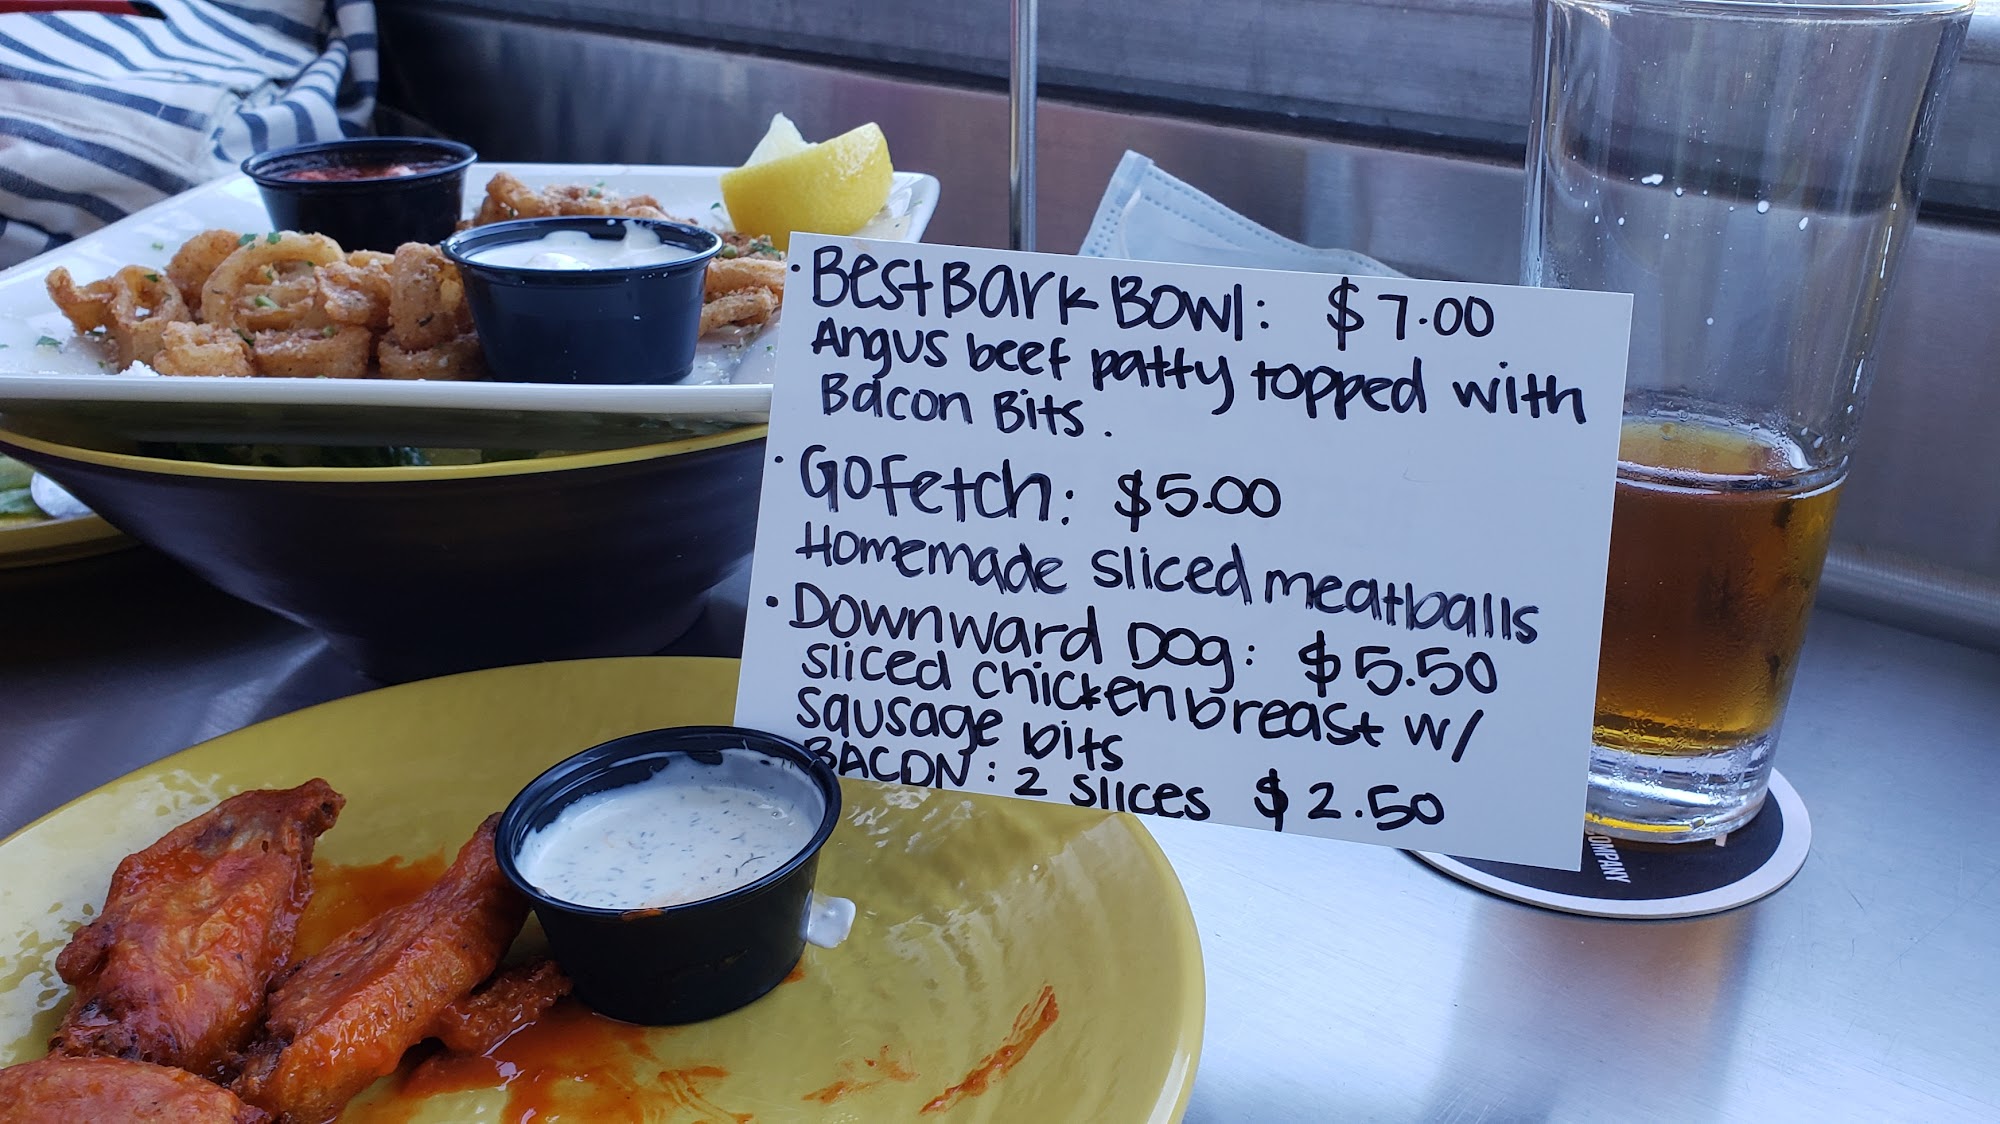 • BestBark Bowl: $7.00
Angus beef patty topped with
Bacon Bits.
• GoFetch: $5.00
Homemade sliced meatballs
• Downward Dog: $5.50
sliced chicken breast w/
sausage bits
BACON: 2 slices $2.50
OMPANY